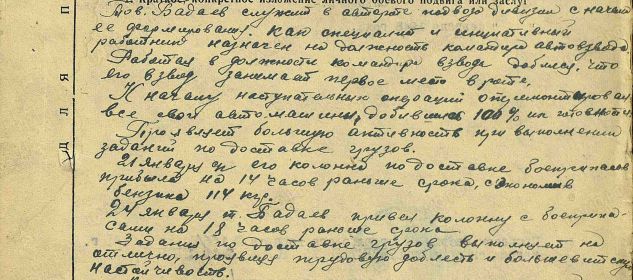 Краткое, конкретное изложение личного боевого подвига или заслуг
Тов. Бадаев служит в автороте подвоза дивизии с начала
ее формирования. Как специалист и инициативный
работник назначен на должность командира автовзвода
Работая в должности командира взвода добился, что
его взвод занимает первое место в роте.
К началу наступательных операций отремонтировал
все свои автомашины, добившись 100% их готовности.
Проявляет большую активность при выполнении
заданий по доставке грузов.
21 января его колонна по доставке боеприпасов
прибыла на 14 часов раньше срока, сэкономив
бензина 114 кгр.
24 января т. Бадаев привел колонну с боеприпа-
сами на 18 часов раньше срока
Задания по доставке грузов выполняет на
отлично, проявляя трудовую доблесть и большевистскую
настойчивость.
П
Д Л Я